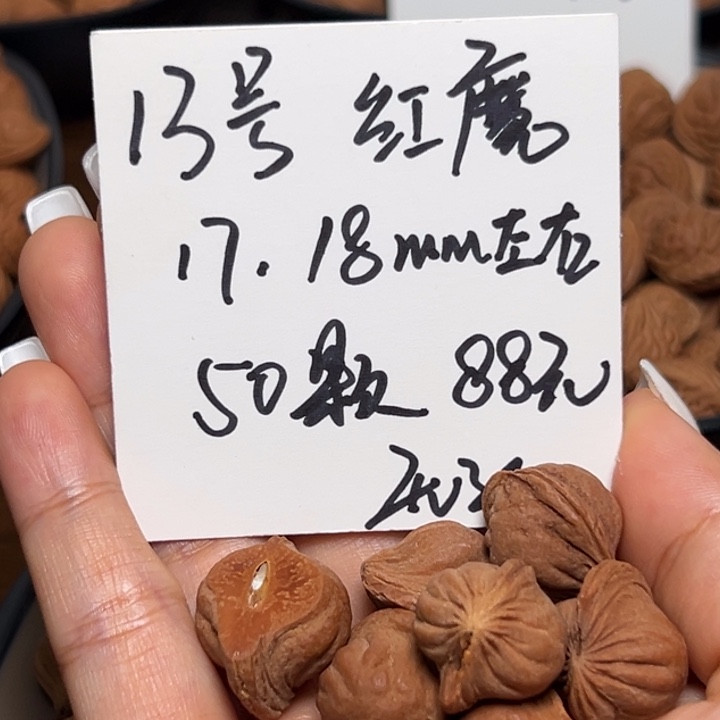 13号 红魔
17.18mm左右
50颗 88元